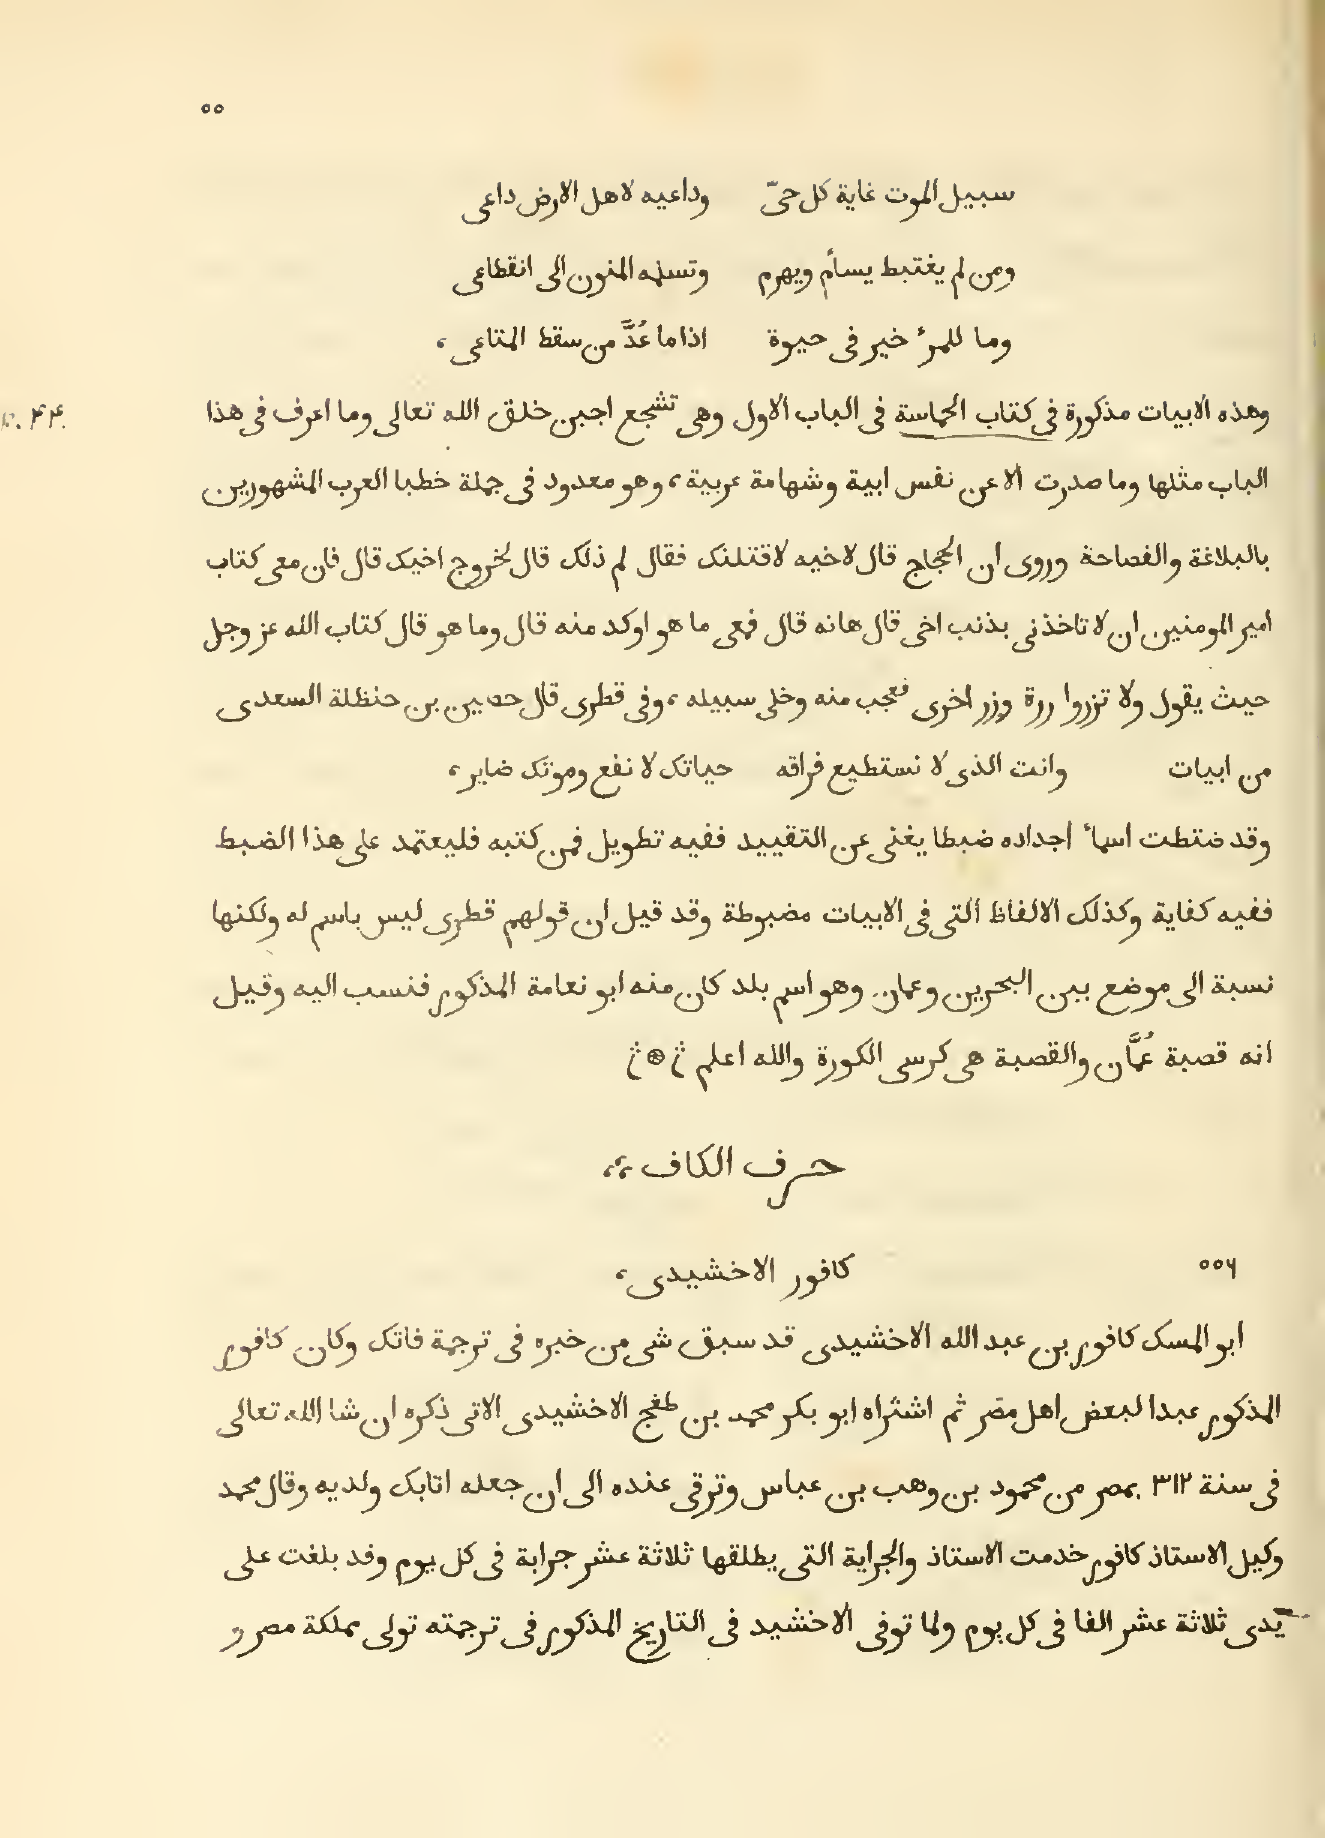 ٥٥
سبيل الموت غاية كل حىّ وداعيه لاهل الارض داعى
ومن لم يغتبط يسأم ويهرم وتسلمه المنون الى انقطاعى
وما للمرٔ خير فى حيوة اذا ما عُدَّ من سقط المتاعى ،
وهذه الابيات مذكورة فى كتاب الحماسة فى الباب الاول وهى تشجع اجبن خلق الله تعالى وما اعرف فى هذا
الباب مثلها وما صدرت الا عن نفس ابية وشهامة عربية ، وهو معدود فى جملة خطبا العرب المشهورين
بالبلاغة والفصاحة وروى ان الحجاج قال لاخيه لاقتلنك فقال لم ذلك قال لخروج اخيك قال فان معى كتاب
امير المومنين ان لا تاخذنى بذنب اخى قال هاته قال فمعى ما هو اوكد منه قال وما هو قال كتاب الله عز وجل
حيث يقول ولا تزروا ررة وزر اخرى فعجب منه وخلى سبيله ، وفى قطرى قال حصين بن حنظلة السعدى
من ابيات وانت الذى لا نستطيع فراقه حياتك لا نفع وموتك ضاير ،
وقد ضتطت اسمأ اجداده ضبطا يغنى عن التقييد ففيه تطويل فمن كتبه فليعتمد على هذا الضبط
ففيه كفاية وكذلك الالفاظ التى فى الابيات مضبوطة وقد قيل ان قولهم قطرى ليس باسم له ولكنها
نسبة الى موضع بين البحرين وعمان وهو اسم بلد كان منه ابو نعامة المذكور فنسب اليه وقيل
انه قصبة عُمَّان والقصبة هى كرسى الكورة والله اعلم
حرف الكاف
٥٥٦ كافور الاخشيدى ،
ابو المسك كافور بن عبد الله الاخشيدى قد سبق شى من خبره فى ترجمة فاتك وكان كافور
المذكور عبدا لبعض اهل مصر ثم اشتراه ابو بكر محمد بن طغج الاخشيدى الاتى ذكره ان شا الله تعالى
فى سنة ٣١٢ بمصر من محمود بن وهب بن عباس وترقى عنده الى ان جعله اتابك ولديه وقال محمد
وكيل الاستاذ كافور خدمت الاستاذ والجراية التى يطلقها ثلاثة عشر جرابة فى كل يوم وفد بلغت على
يدى ثلاثة عشر الفا فى كل يوم ولما توفى الاخشيد فى التاريخ المذكور فى ترجمته تولى مملكة مصر و